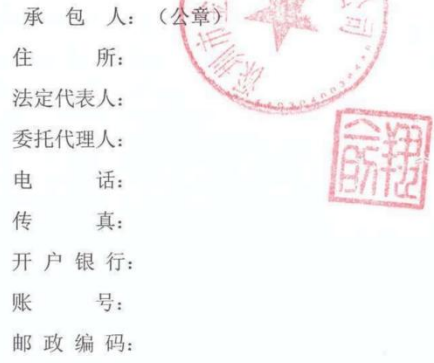 承 包 人：（公章）
住 所：
法定代表人：
委托代理人：
电 话：
传 真：
开 户 银 行：
账 号：
邮 政 编 码：
深圳市
公司